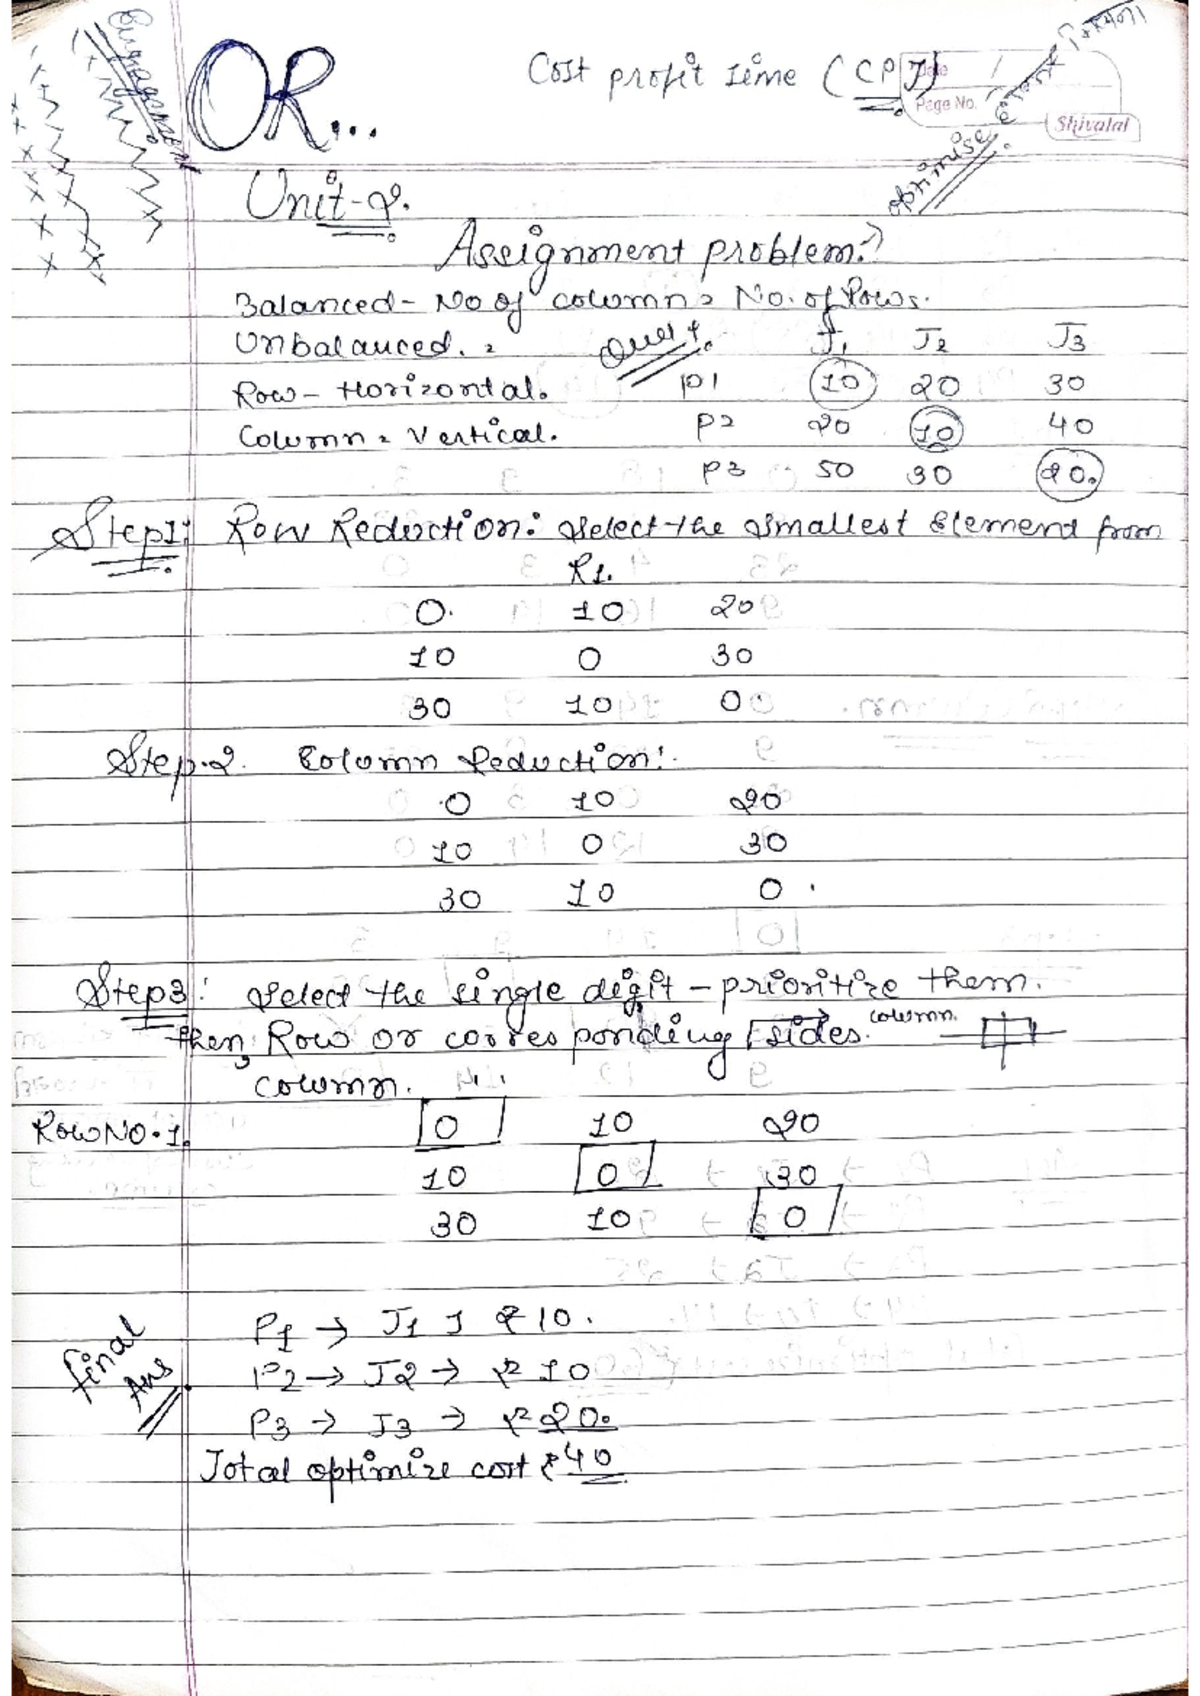 OR...
Cost profit time (CPT)
Date
Page No.
Shivalal
optimise
Unit-2.
Assignment problem:→
Balanced - No of column = No. of Rows.
Unbalanced. =
Row - Horizontal.
Column = Vertical.
Ques 1.
J1 J2 J3
P1 10 20 30
P2 20 10 40
P3 50 30 20.
Step 1: Row Reduction: Select the smallest Element from
R1.
0. 10 20
10 0 30
30 10 0
Step.2. Column Reduction:
0 10 20
10 0 30
30 10 0.
Step 3: Select the single digit - prioritize them.
then, Row or corresponding sides. column.
column.
Row NO.1. 0 10 20
10 0 30
30 10 0
Final Ans
P1 → J1 → ₹10.
P2 → J2 → ₹10
P3 → J3 → ₹20.
Total optimize cost ₹40